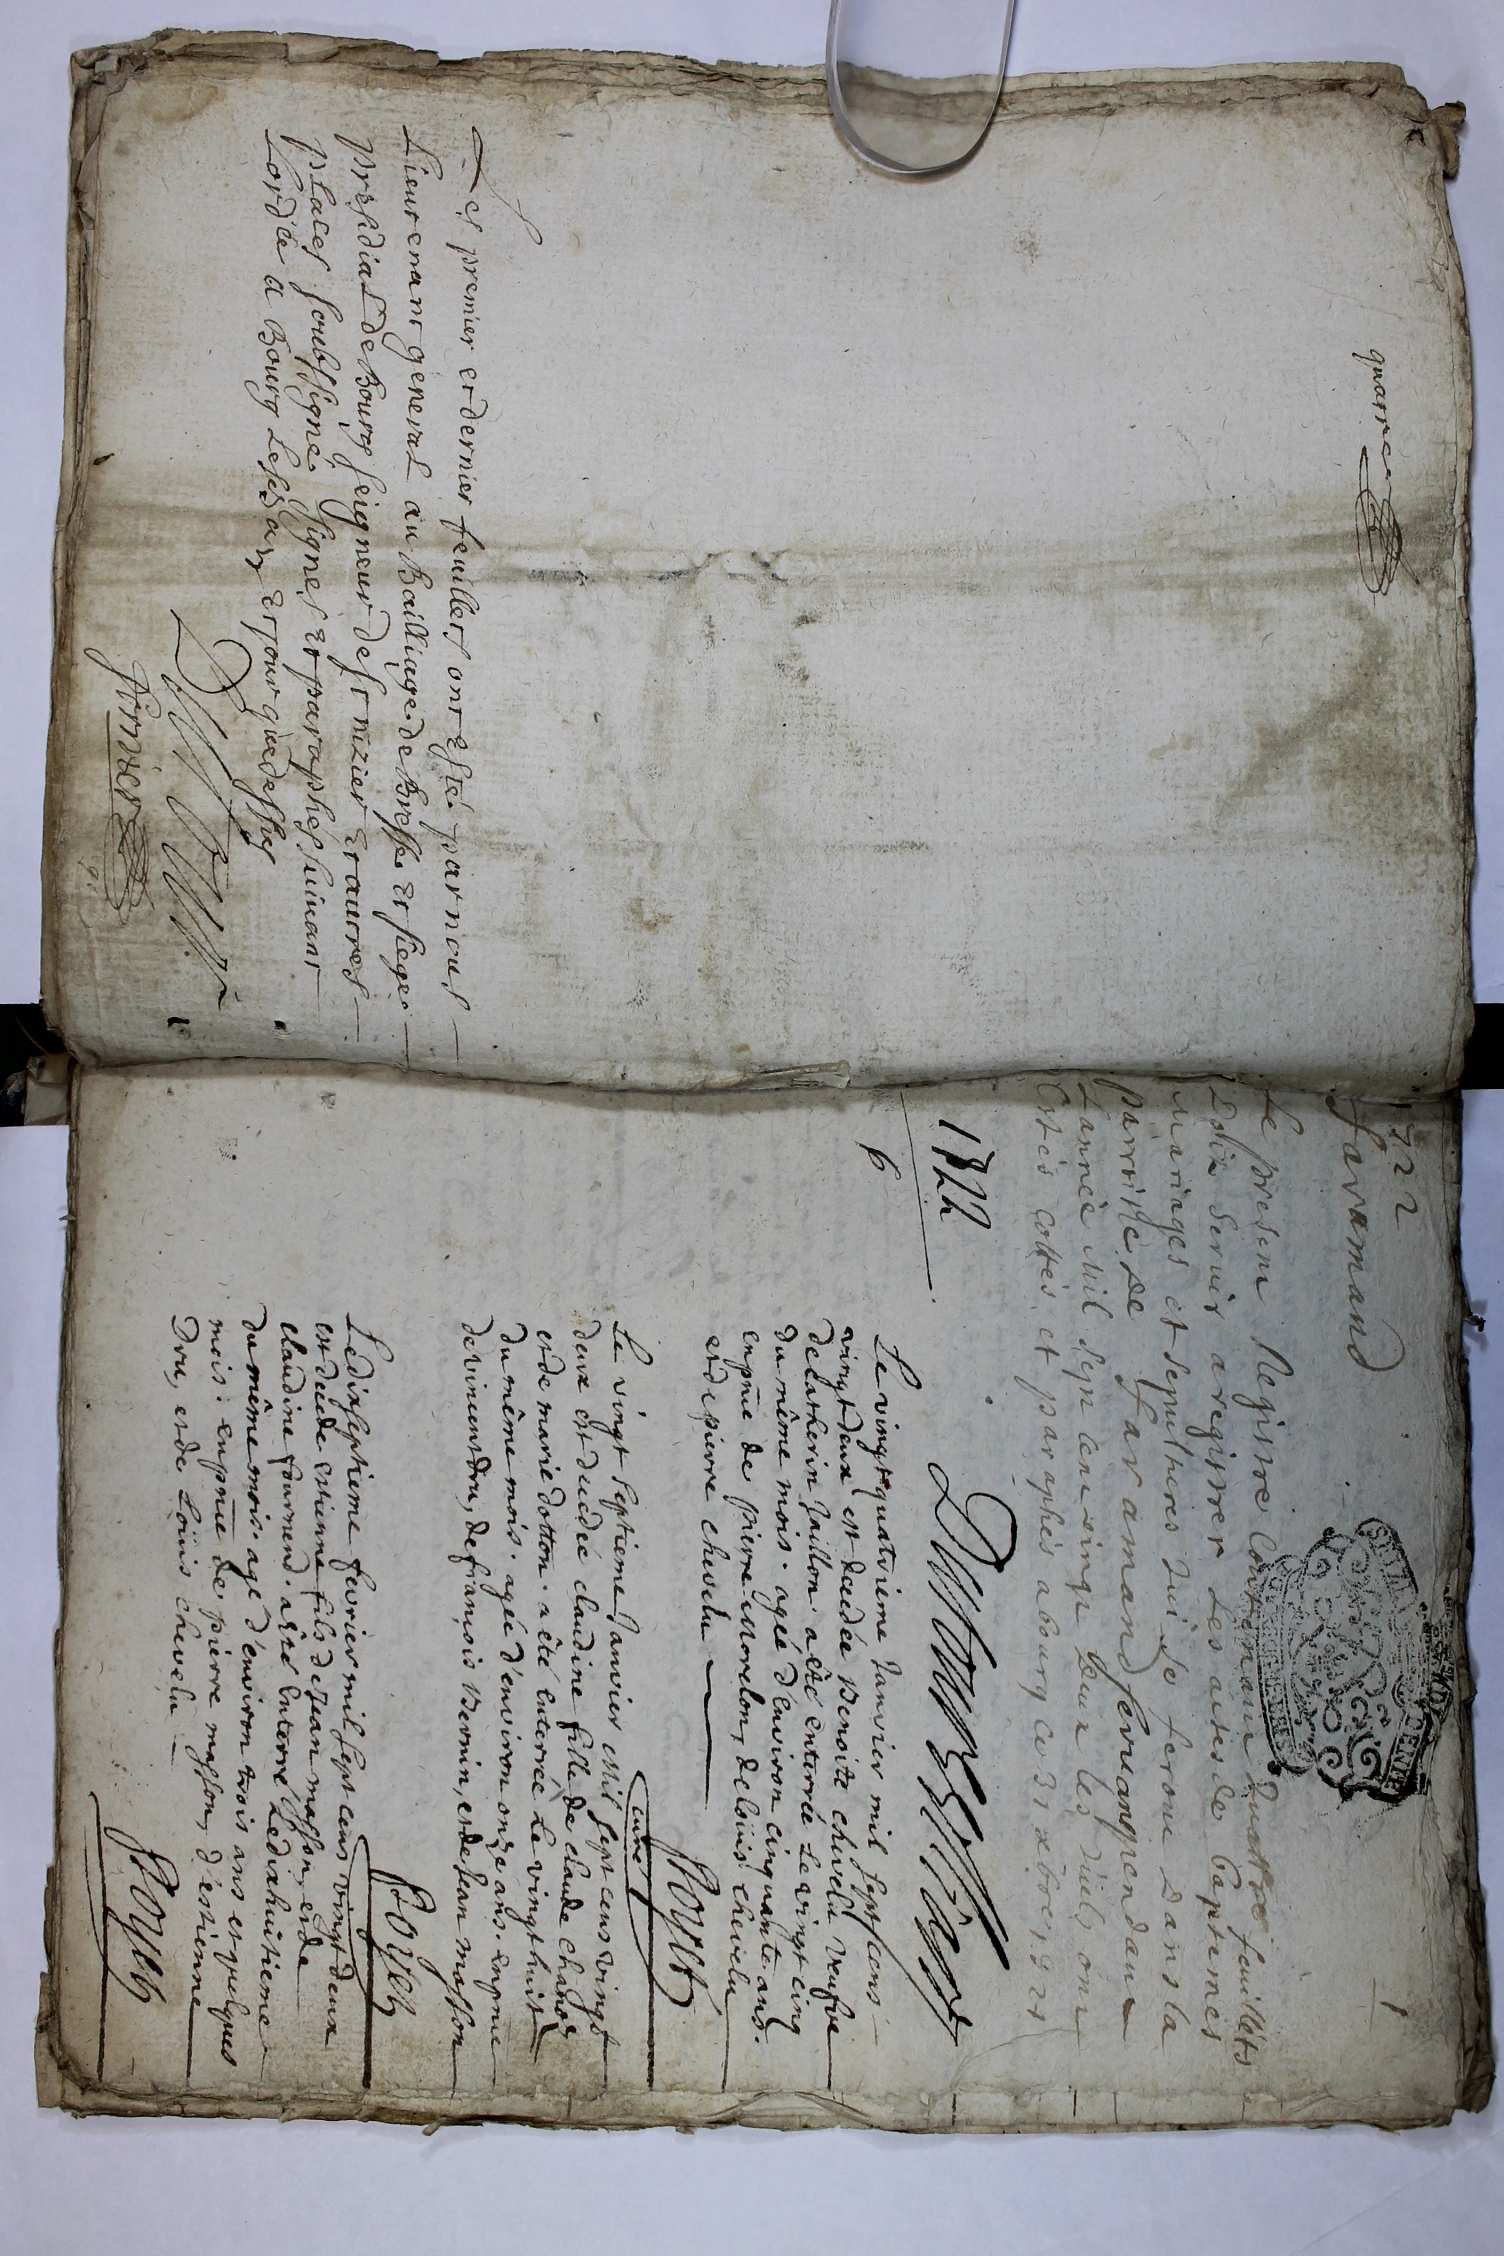 quatre
Les premier et dernier feuillets ont esté par nous
Lieutenant general au Bailliage de Bresse et siege
presidial de Bourg seigneur de st nizier et autres
places soubsigné signes et paraphés suivant
Lordce a Bourg Les jour que dessus
1722
1
Faramand
Le present Registre Contenant quattre feuillets
Doit Servir a registrer Les actes de Baptemes
Mariages et Sepultures qui se feront Dans la
parroisse de Faramand Pendant
Lannée Mil Sept cent vingt Deux les quels ont
Estés cottés et paraphés a bourg ce 31 xbre 1721
1722
6
Le vingt quatrieme Janvier mil sept cens
vingt deux est decedée Benoite chevelu veufve
de Catherin Jaillon. a été enterrée Le vingt cinq
du même mois. agée d'environ cinquante ans.
en pnce de pierre Morelon, de Loüis chevelu
et de pierre chevelu
curé
Le vingt septieme Janvier Mil sept cens vingt
deux est decedée claudine fille de claude chanel
et de marie dotton. a été enterrée Le vingt huit
du même mois. agée d'environ onze ans. en pnce
de vincent dru, de françois Bernin, et de Jean masson
Le dixseptieme fevrier mil sept cens vingt deux
est decede estienne fils de Jean masson, et de
claudine fournend. a été enterré Le dixhuitieme
du même mois. agé d'environ trois ans et quelques
mois. en pnce de pierre masson, d'estienne
Dru, et de Loüis chevelu